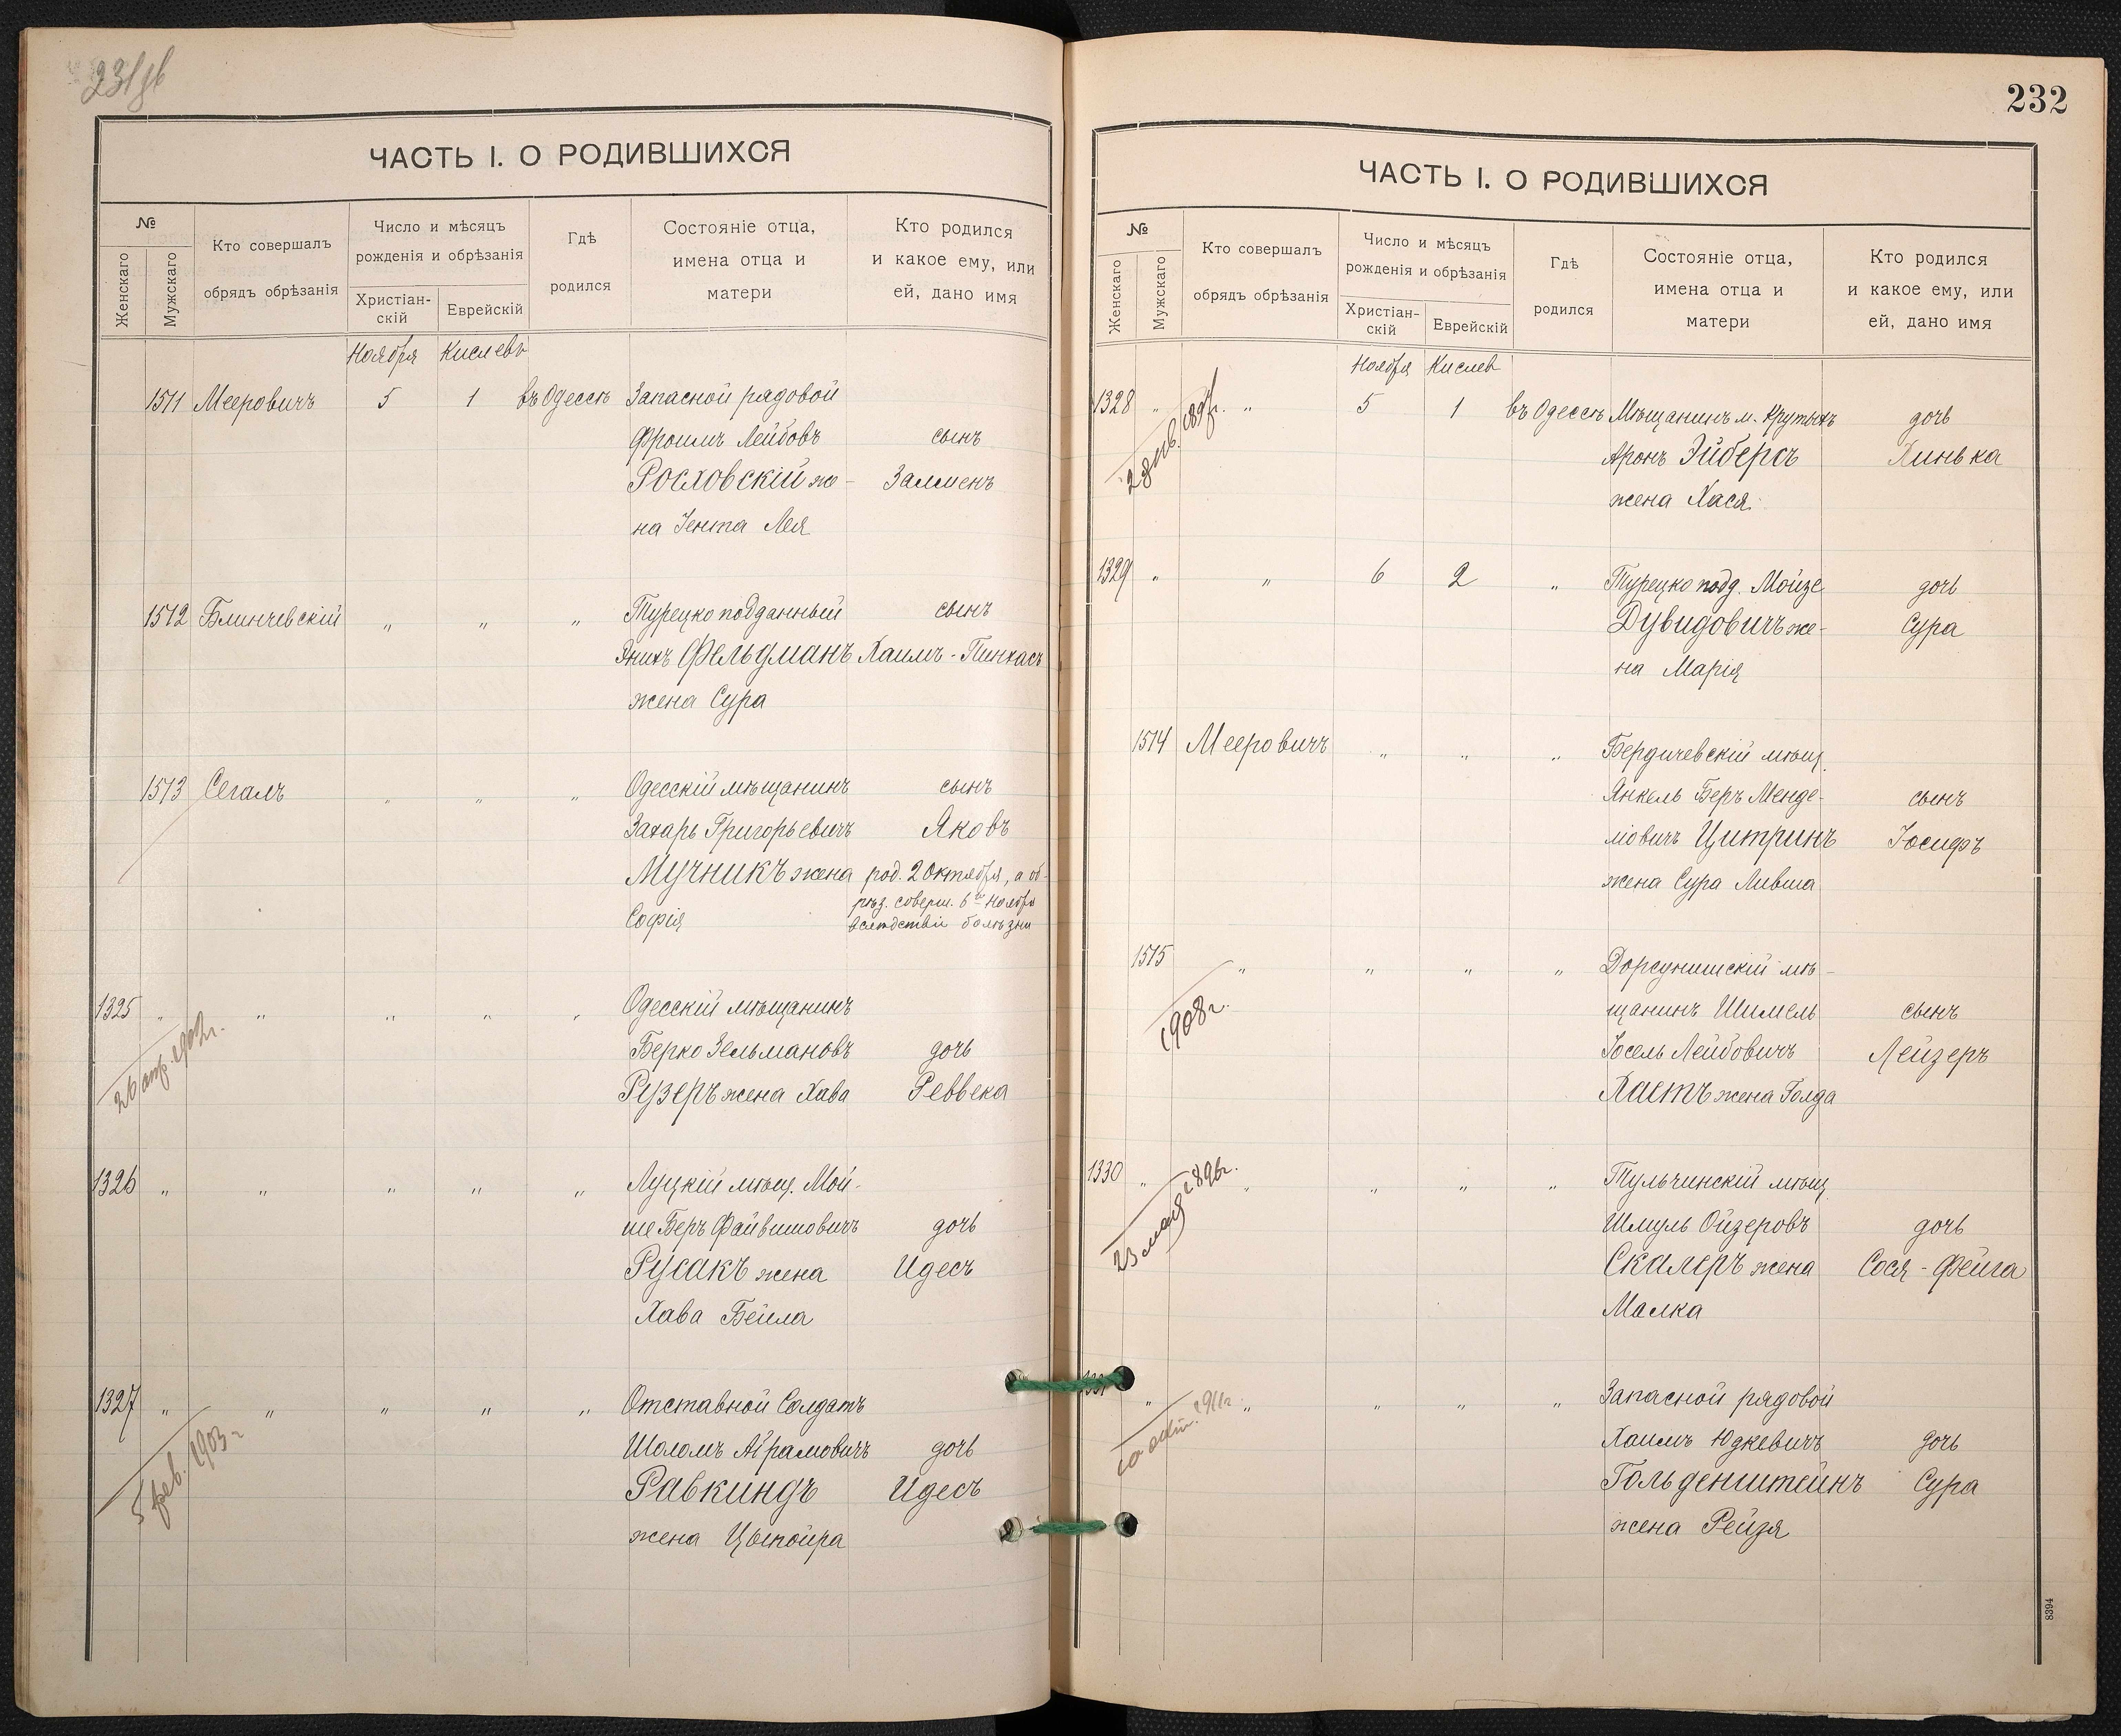 231об
ЧАСТЬ I. О РОДИВШИХСЯ
№
Женскаго
Мужскаго
Кто совершалъ
обрядъ обрѣзанія
Число и мѣсяцъ
рожденія и обрѣзанія
Христіан-
скій
Еврейскій
Гдѣ
родился
Состояніе отца,
имена отца и
матери
Кто родился
и какое ему, или
ей, дано имя
Ноября Кислевъ
1511 Мееровичъ 5 1 въ Одессѣ Запасной рядовой
Фроимъ Лейбовъ сынъ
Рословскій же- Залменъ
на Іента Лея
1512 Блинчевскій " " " Турецко подданный сынъ
Энихъ Фельдманъ Хаимъ-Пинхасъ
жена Сура
1513 Сегалъ " " " Одесскій мѣщанинъ сынъ
Захарь Григорьевичъ Яковъ
Мучникъ жена род. 2 Октября, а об-
рѣз. соверш. 6го Ноября
Софія вслѣдствіи болѣзни
1325 " " " " " Одесскій мѣщанинъ
26 апр. 1902 г.
Берко Зельмановъ дочь
Рузеръ жена Хава Реввека
1326 " " " " " Луцкій мѣщ. Мой-
ше Беръ Файвишовичъ дочь
Русакъ жена Идесъ
Хава Бейла
1327 " " " " " Отставной Солдатъ
5 фев. 1903 г
Шоломъ Абрамовичъ дочь
Равкиндъ Идесъ
жена Цыпойра
232
ЧАСТЬ I. О РОДИВШИХСЯ
№
Женскаго
Мужскаго
Кто совершалъ
обрядъ обрѣзанія
Число и мѣсяцъ
рожденія и обрѣзанія
Христіан-
скій
Еврейскій
Гдѣ
родился
Состояніе отца,
имена отца и
матери
Кто родился
и какое ему, или
ей, дано имя
Ноября Кислев
1328 " " 5 1 въ Одессѣ Мѣщанинъ м. Крутыхъ дочь
Аронъ Эйберъ Хинька
жена Хася
1329 " " 6 2 " Турецко подд. Мойзе дочь
Дувидовичъ же- Сура
на Марія
1514 Мееровичъ " " " Бердичевскій мѣщ.
Янкель Беръ Менде- сынъ
ліовичъ Цитринъ Іосифъ
жена Сура Ливша
1515 " " " " Дорсунишскій мѣ-
1908 г.
щанинъ Шимель сынъ
Іосель Лейбовичъ Лейзеръ
Хаетъ жена Голда
1330 " " " " " Тульчинскій мѣщ
23 мая 1896 г.
Шмуль Ойзеровъ дочь
Скалеръ жена Сося-Фейга
Малка
1331 " " " " " Запасной рядовой
10 1911 г
Хаимъ Юдкевичъ дочь
Гольденштейнъ Сура
жена Рейзя
8394